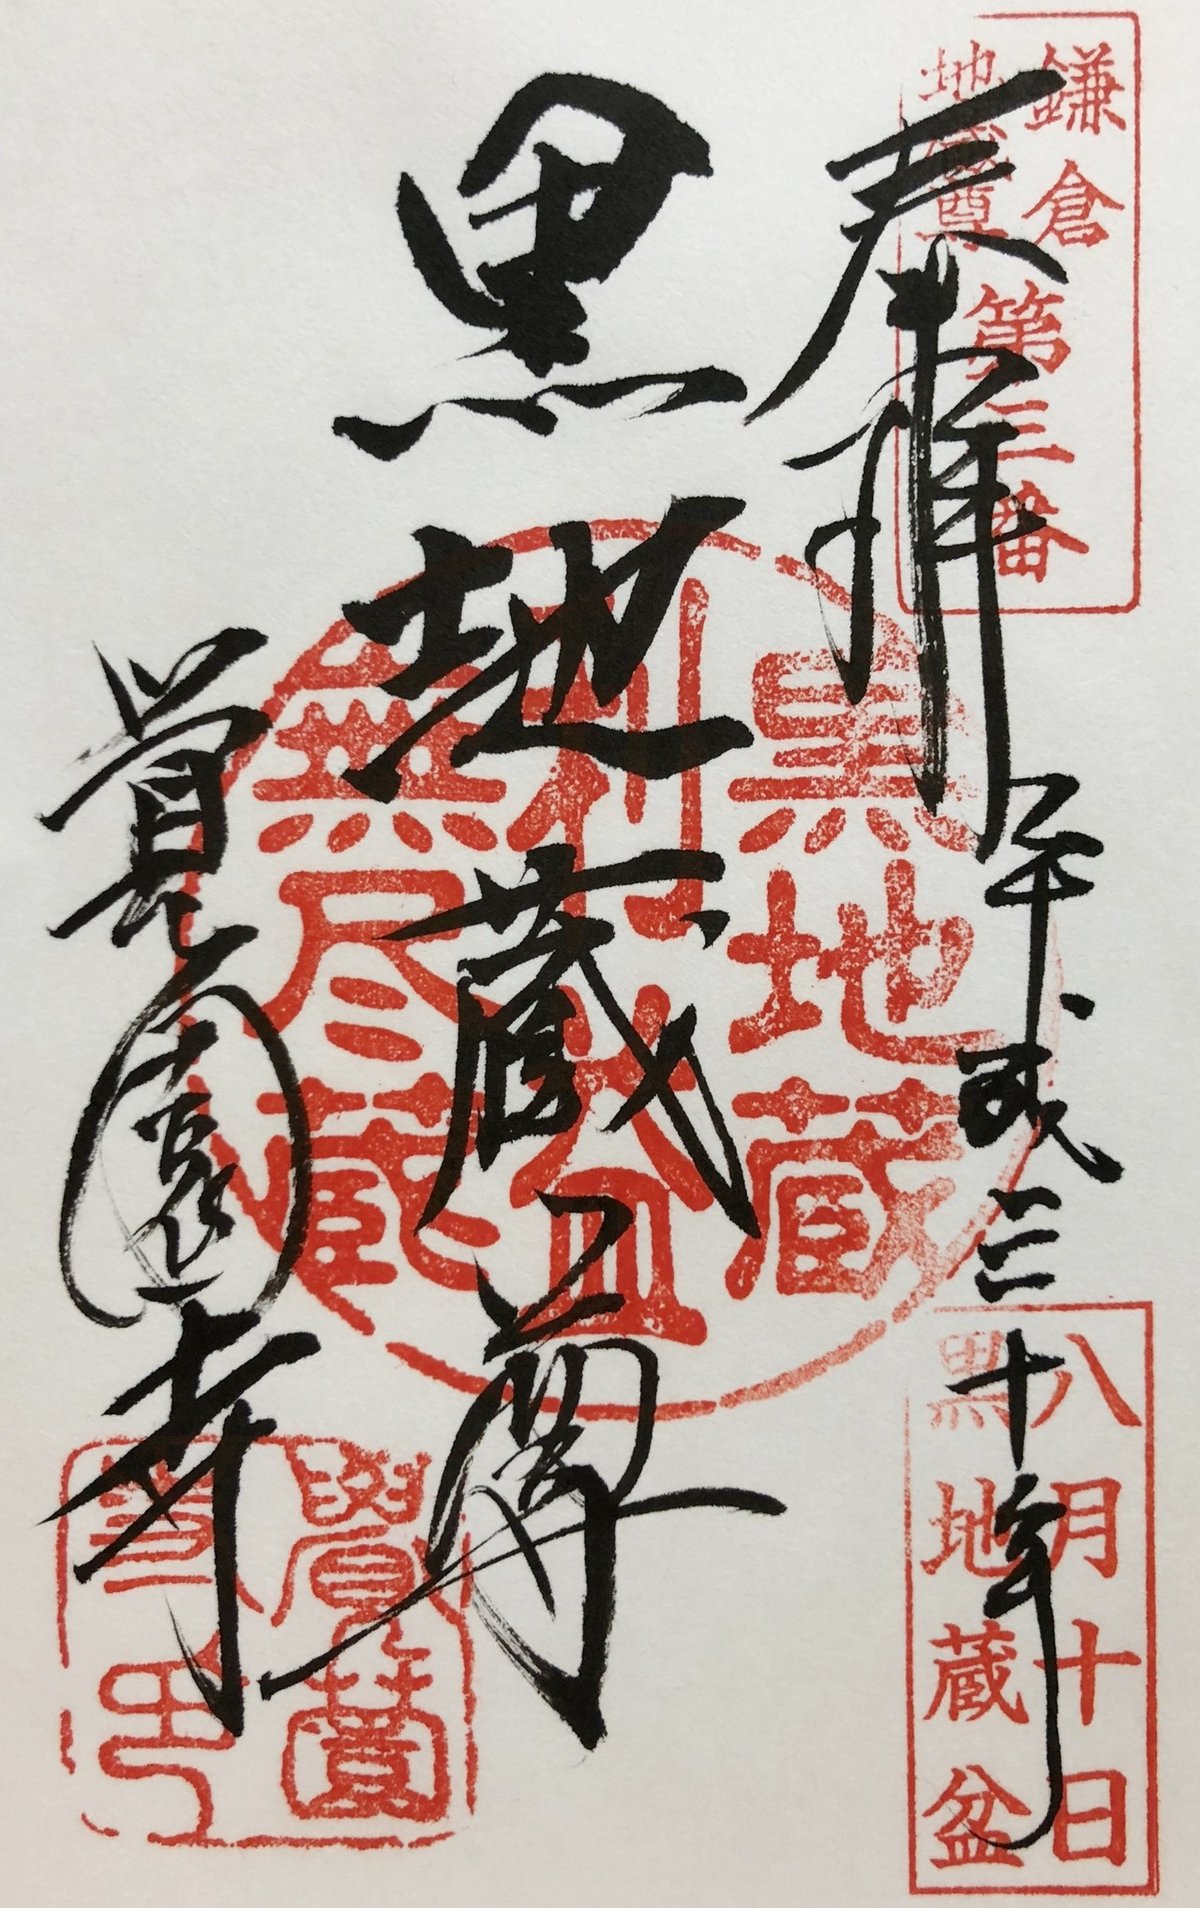 鎌倉
地蔵尊
第三番
奉拝
平成三十年
八月十日
黒地蔵盆
黒地蔵尊
黒地蔵
利益
無尽蔵
覚園寺
覺園
寺印